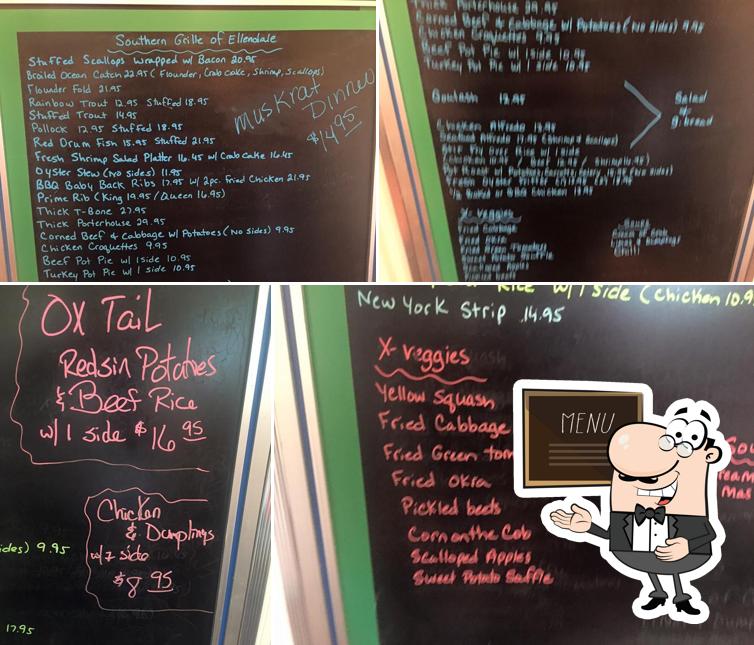 Southern Grille of Ellendale
Stuffed Scallops wrapped w/ Bacon 20.95
Broiled Ocean Catch 22.95 (Flounder, Crab cake, Shrimp, Scallops)
Flounder Fold 21.95
Rainbow Trout 12.95 Stuffed 18.95
Stuffed Trout 14.95
Pollock 12.95 Stuffed 18.95
Red Drum Fish 15.95 Stuffed 21.95
Fresh Shrimp Salad Platter 16.45 w/ Crab Cake 16.45
Oyster Stew (No sides) 11.95
BBQ Baby Back Ribs 17.95 w/ 2pc. Fried Chicken 21.95
Prime Rib (King 19.95 / Queen 16.95)
Thick T-Bone 27.95
Thick Porterhouse 29.95
Corned Beef & Cabbage w/ Potatoes (No sides) 9.95
Chicken Croquettes 9.95
Beef Pot Pie w/ 1 side 10.95
Turkey Pot Pie w/ 1 side 10.95
Muskrat
Dinner
$14.95
Thick Porterhouse 29.95
Corned Beef & Cabbage w/ Potatoes (No sides) 9.95
Chicken Croquettes 9.95
Beef Pot Pie w/ 1 side 10.95
Turkey Pot Pie w/ 1 side 10.95
Goulash
Salad
&
G. bread
Chicken Alfredo
X-Veggies
Fried Cabbage
Fried Okra
Fried Green Tomatoes
Sweet Potato Souffle
Soups
Chili
Ox Tail
Redsin Potatoes
& Beef Rice
w/ 1 side $16.95
Chicken
& Dumplings
w/ 7 side
$8.95
ides) 9.95
17.95
Rice w/ 1 side (Chicken 10.9
New York Strip 14.95
X-Veggies
Yellow Squash
Fried Cabbage
Fried Green tom
Fried Okra
Pickled beets
Corn on the Cob
Scalloped Apples
Sweet Potato Souffle
MENU
Sou
ream
Mas